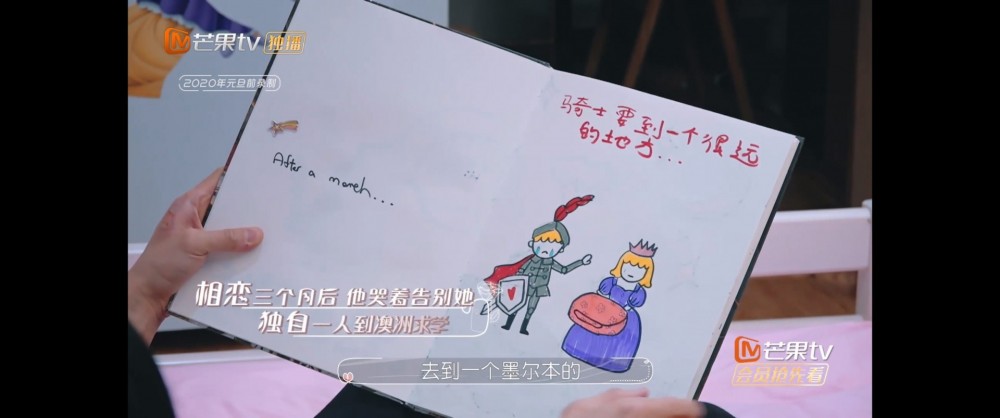 芒果tv 独播
2020年元旦前录制
骑士要到一个很远
的地方...
After a month...
相恋三个月后 他哭着告别她
独自一人到澳洲求学
去到一个墨尔本的
芒果tv
会员抢先看